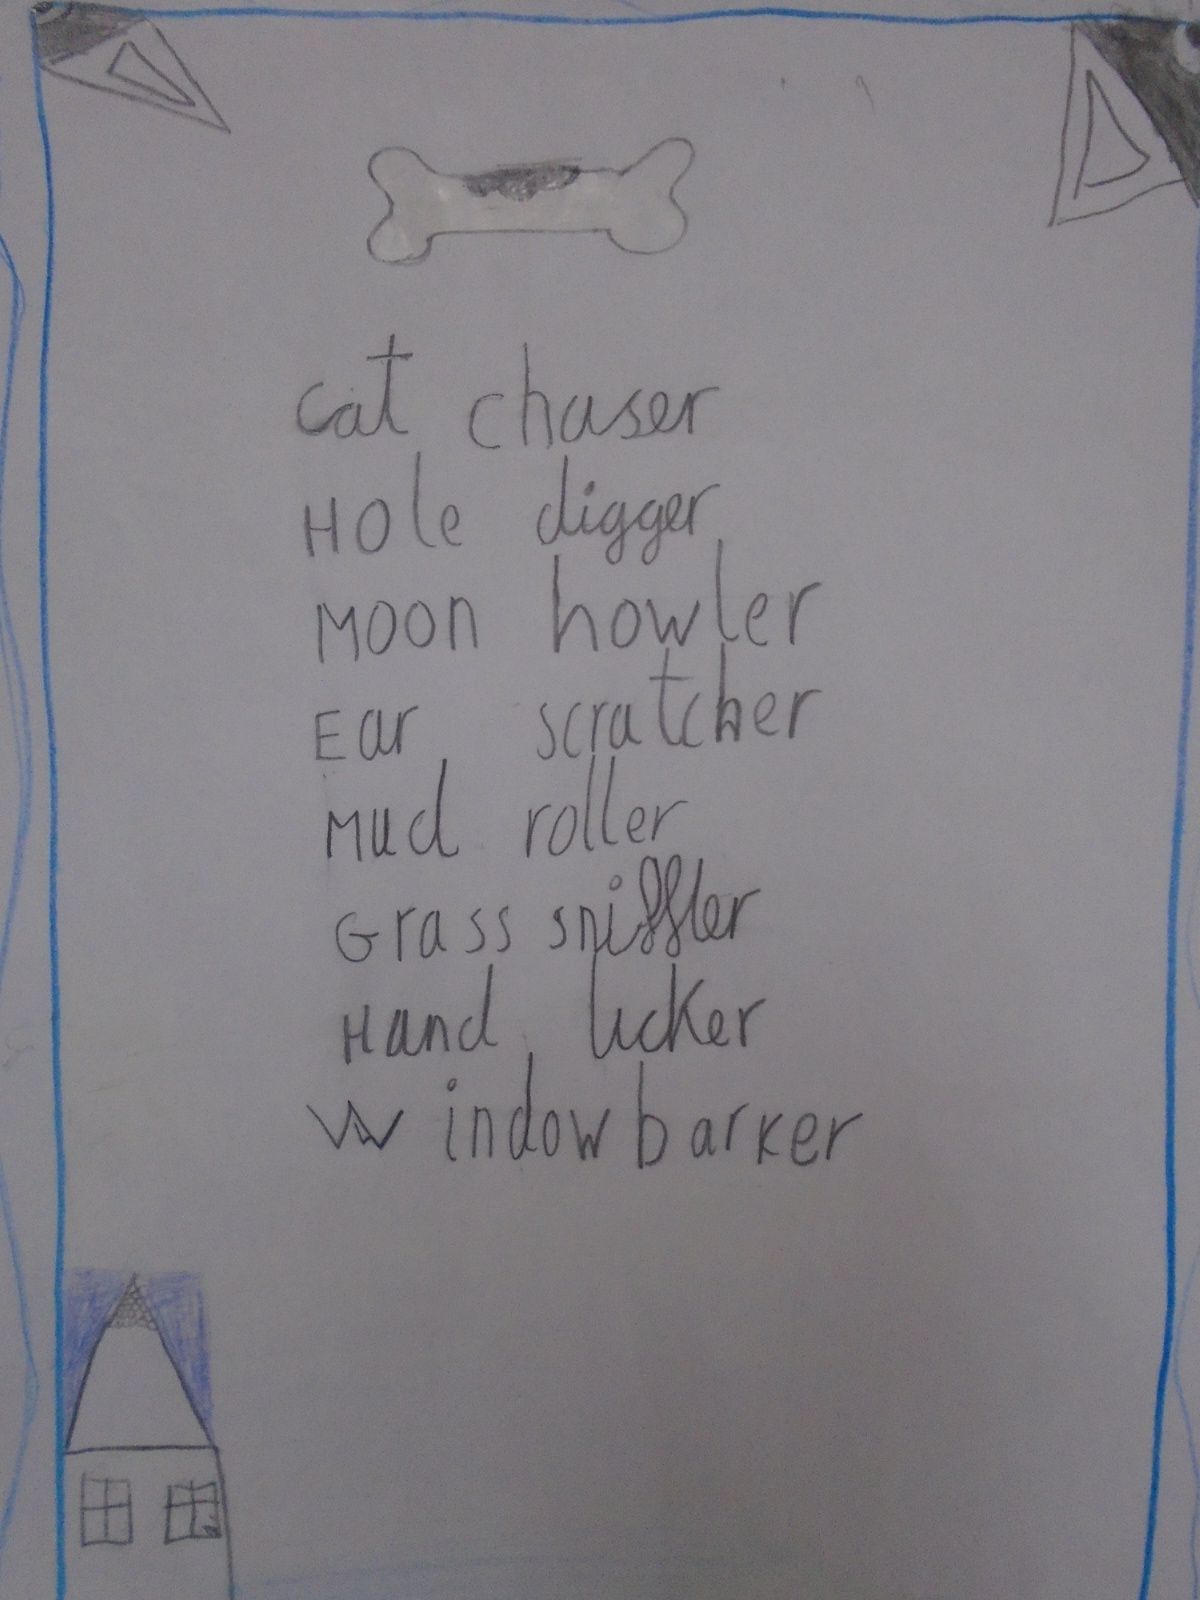 cat chaser
Hole digger
Moon howler
Ear scratcher
Mud roller
Grass sniffler
Hand licker
Window barker